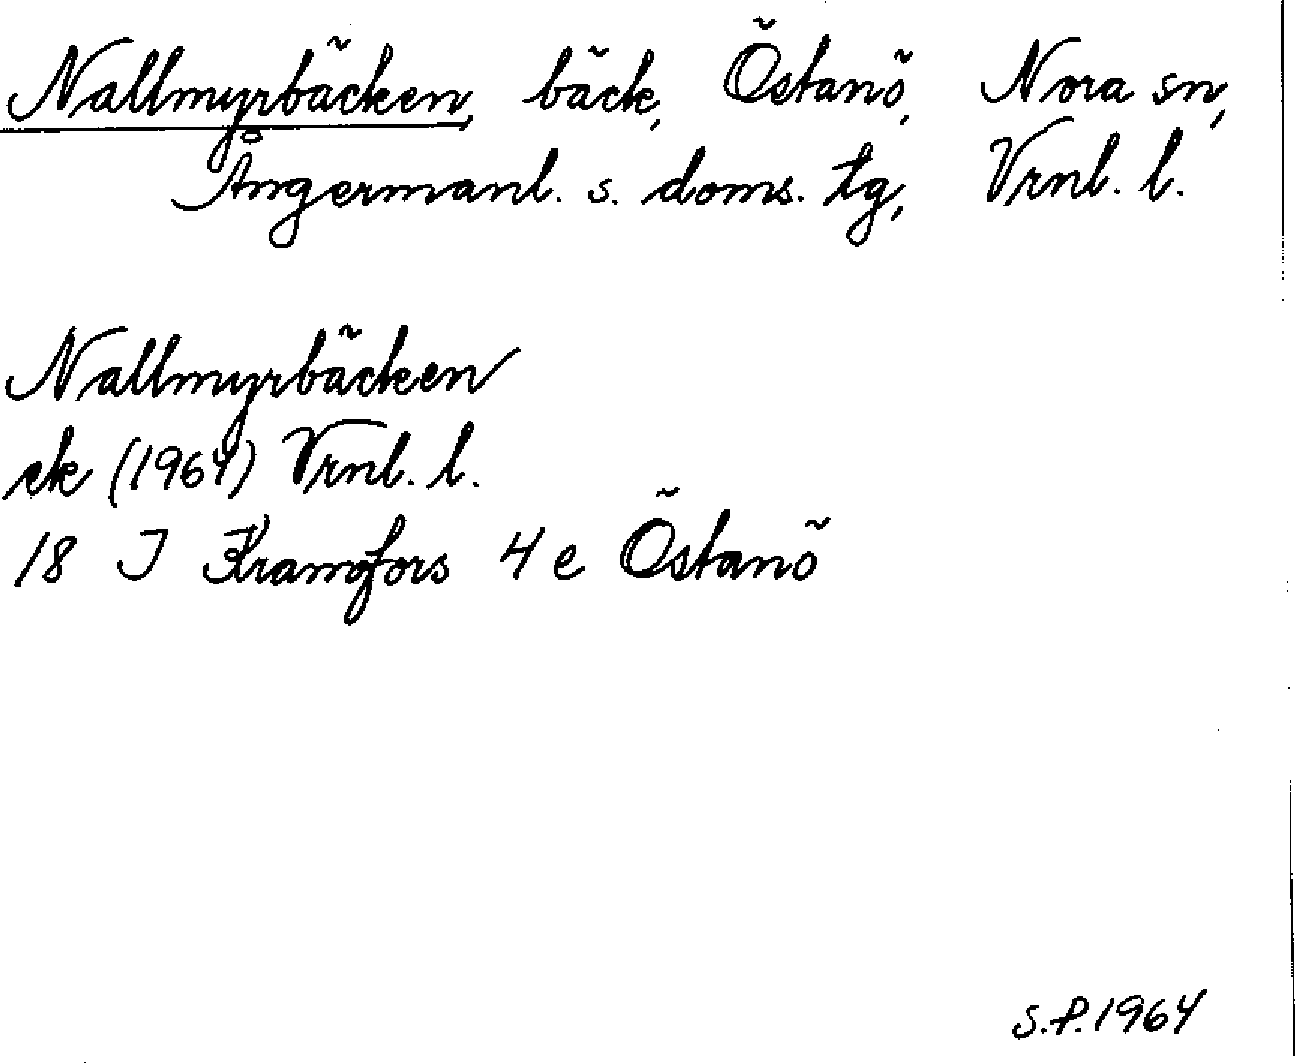 Nallmyrbäcken, bäck, Östanö, Nora sn,
Ångermanl. s. doms. tg, Vrnl. l.
Nallmyrbäcken
ek (1964) Vrnl. l.
18 I Kramfors 4 e Östanö
S.P. 1964